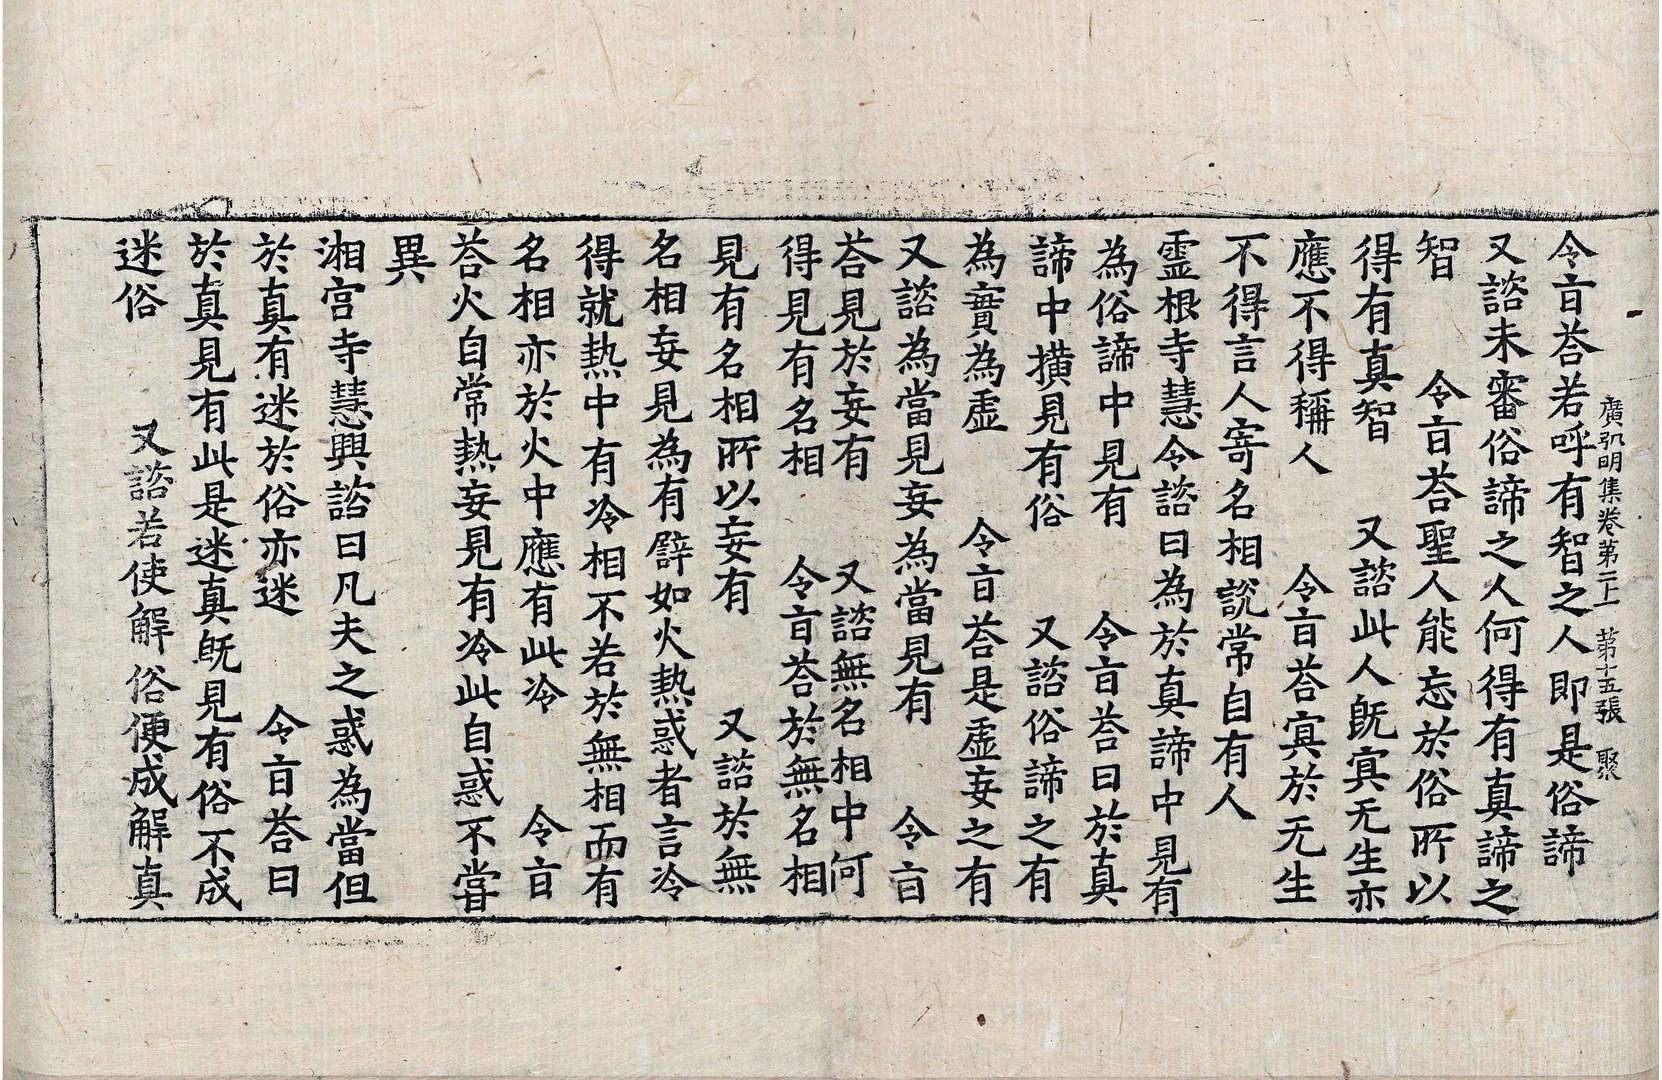 廣弘明集卷第二十一　第十五張　聚
令旨荅若呼有智之人即是俗諦
又諮未審俗諦之人何得有真諦之
智　令旨荅聖人能忘於俗所以
得有真智　又諮此人既㝠无生亦
應不得稱人　令旨荅㝠於无生
不得言人寄名相說常自有人
靈根寺慧令諮曰為於真諦中見有
為俗諦中見有　令旨荅曰於真
諦中横見有俗　又諮俗諦之有
為實為虛　令旨荅是虛妄之有
又諮為當見妄為當見有　令旨
荅見於妄有　又諮無名相中何
得見有名相　令旨荅於無名相
見有名相所以妄有　又諮於無
名相妄見為有譬如火熱惑者言冷
得就熱中有冷相不若於無相而有
名相亦於火中應有此冷　令旨
荅火自常熱妄見有冷此自惑不甞
異
湘宮寺慧興諮曰凡夫之惑為當但
於真有迷於俗亦迷　令旨荅曰
於真見有此是迷真既見有俗不成
迷俗　又諮若使解俗便成解真